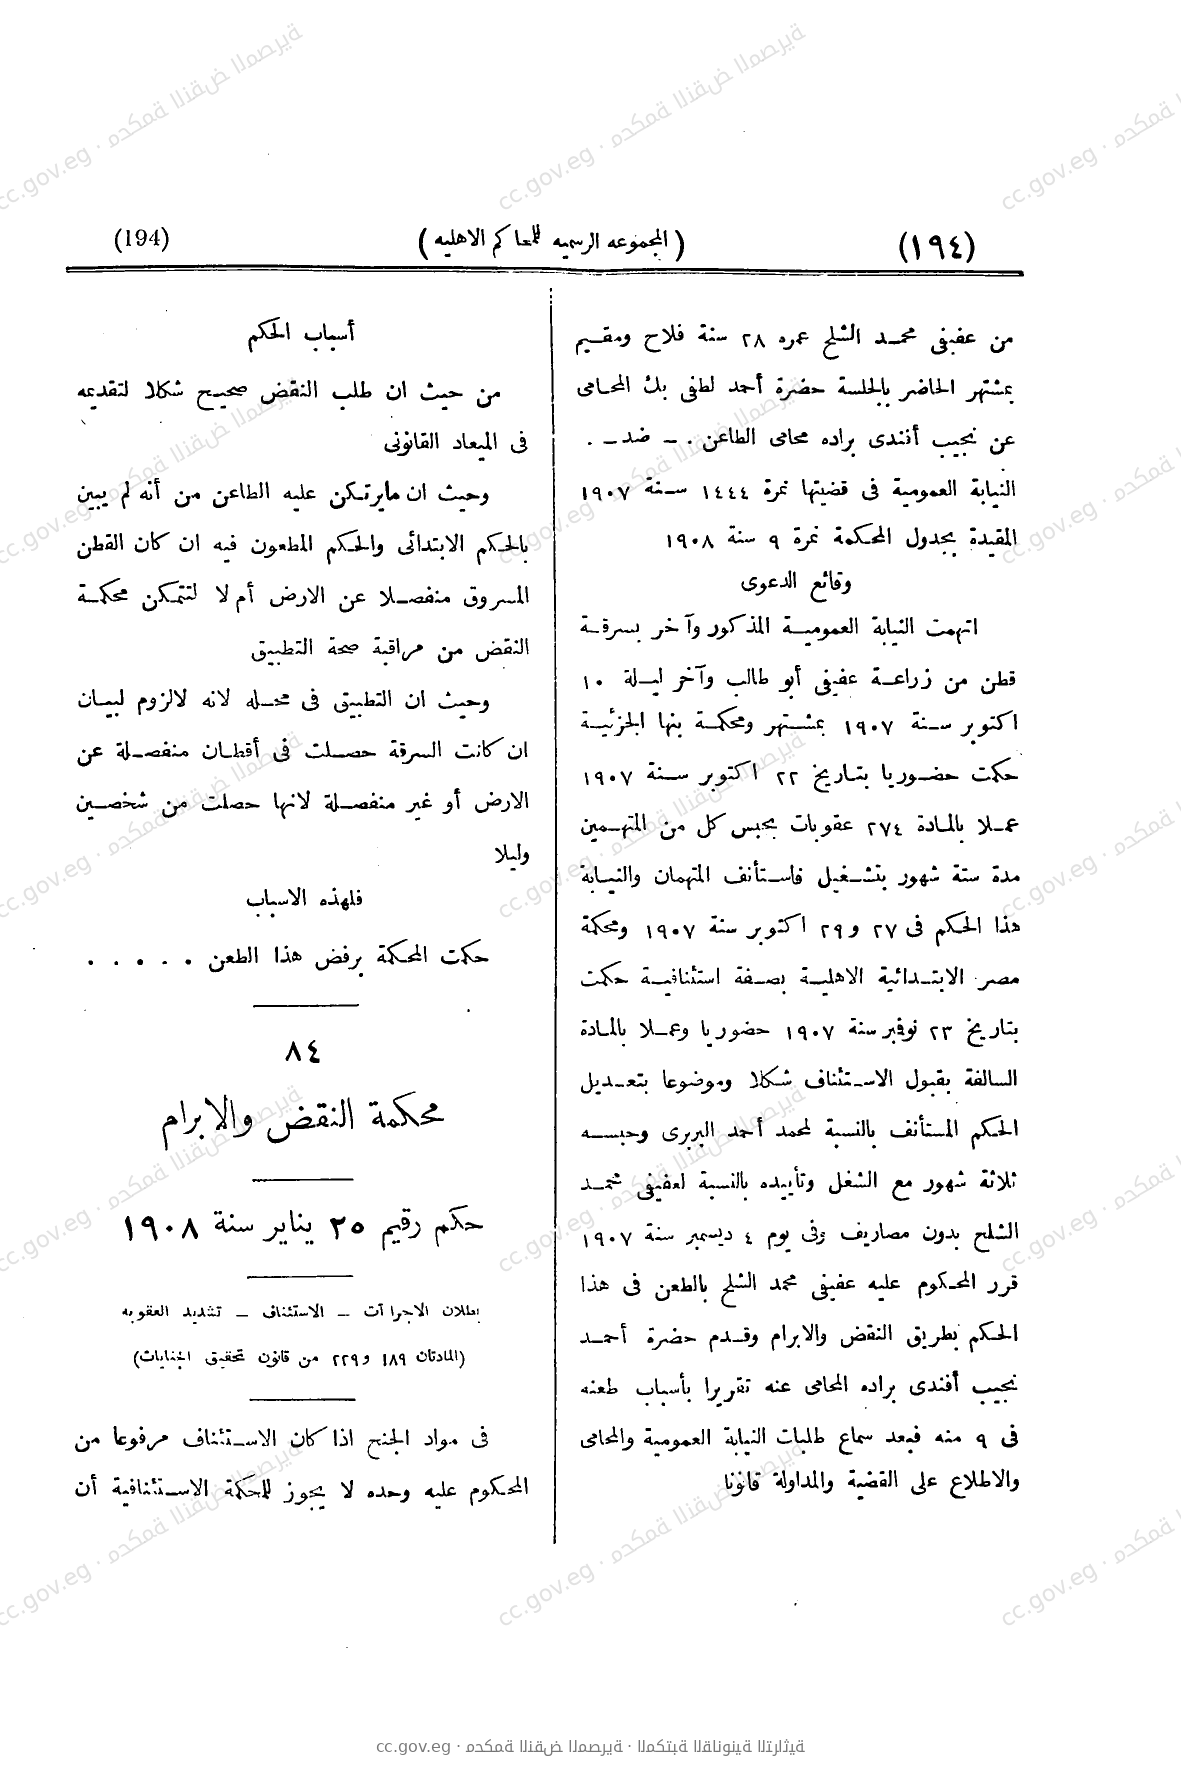 (١٩٤) (المجموعه الرسميه للمحاكم الاهليه) (194)
من عفيفى محمد الشلح عمره ٢٨ سنة فلاح ومقيم
بمشتهر الحاضر بالجلسة حضرة أحمد لطفى بك المحامى
عن نجيب أفندى براده محامى الطاعن . – ضد – .
النيابة العمومية فى قضيتها نمرة ١٤٤٤ سنة ١٩٠٧
المقيدة بجدول المحكمة نمرة ٩ سنة ١٩٠٨
وقائع الدعوى
اتهمت النيابة العمومية المذكور وآخر بسرقة
قطن من زراعة عفيفى أبو طالب وآخر ليلة ١٠
اكتوبر سنة ١٩٠٧ بمشتهر ومحكمة بنها الجزئية
حكمت حضوريا بتاريخ ٢٢ اكتوبر سنة ١٩٠٧
عملا بالمادة ٢٧٤ عقوبات بحبس كل من المتهمين
مدة ستة شهور بتشغيل فاستأنف المتهمان والنيابة
هذا الحكم فى ٢٧ و ٢٩ اكتوبر سنة ١٩٠٧ ومحكمة
مصر الابتدائية الاهلية بصفة استئنافية حكمت
بتاريخ ٢٣ نوفمبر سنة ١٩٠٧ حضوريا وعملا بالمادة
السالفة بقبول الاستئناف شكلا وموضوعا بتعديل
الحكم المستأنف بالنسبة لمحمد أحمد البربرى وحبسه
ثلاثة شهور مع الشغل وتأييده بالنسبة لعفيفى محمد
الشلح بدون مصاريف وفى يوم ٤ ديسمبر سنة ١٩٠٧
قرر المحكوم عليه عفيفى محمد الشلح بالطعن فى هذا
الحكم بطريق النقض والابرام وقدم حضرة أحمد
نجيب أفندى براده المحامى عنه تقريرا بأسباب طعنه
فى ٩ منه فبعد سماع طلبات النيابة العمومية والمحامى
والاطلاع على القضية والمداولة قانونا
أسباب الحكم
من حيث ان طلب النقض صحيح شكلا لتقديمه
فى الميعاد القانونى
وحيث ان مايرتكن عليه الطاعن من أنه لم يبين
بالحكم الابتدائى والحكم المطعون فيه ان كان القطن
المسروق منفصلا عن الارض أم لا لتتمكن محكمة
النقض من مراقبة صحة التطبيق
وحيث ان التطبيق فى محله لانه لالزوم لبيان
ان كانت السرقة حصلت فى أقطان منفصلة عن
الارض أو غير منفصلة لانها حصلت من شخصين
وليلا
فلهذه الاسباب
حكمت المحكمة برفض هذا الطعن . . . . .
٨٤
محكمة النقض والابرام
حكم رقيم ٢٥ يناير سنة ١٩٠٨
بطلان الاجراآت – الاستئناف – تشديد العقوبه
(المادتان ١٨٩ و ٢٢٩ من قانون تحقيق الجنايات)
فى مواد الجنح اذا كان الاستئناف مرفوعا من
المحكوم عليه وحده لا يجوز للمحكمة الاستئنافية أن
cc.gov.eg · محكمة النقض المصرية · المكتبة القانونية التراثية